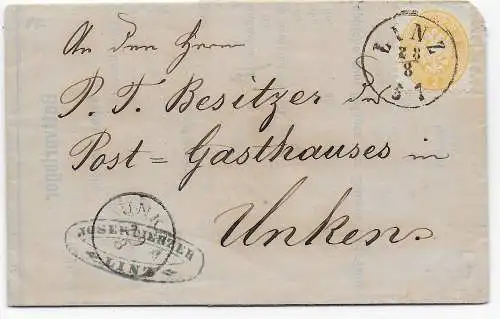 An den Herrn
P. T. Besitzer des
Post=Gasthauses in
Unken
LINZ
28
8
5 7
UNK
JOSEF
LINZ